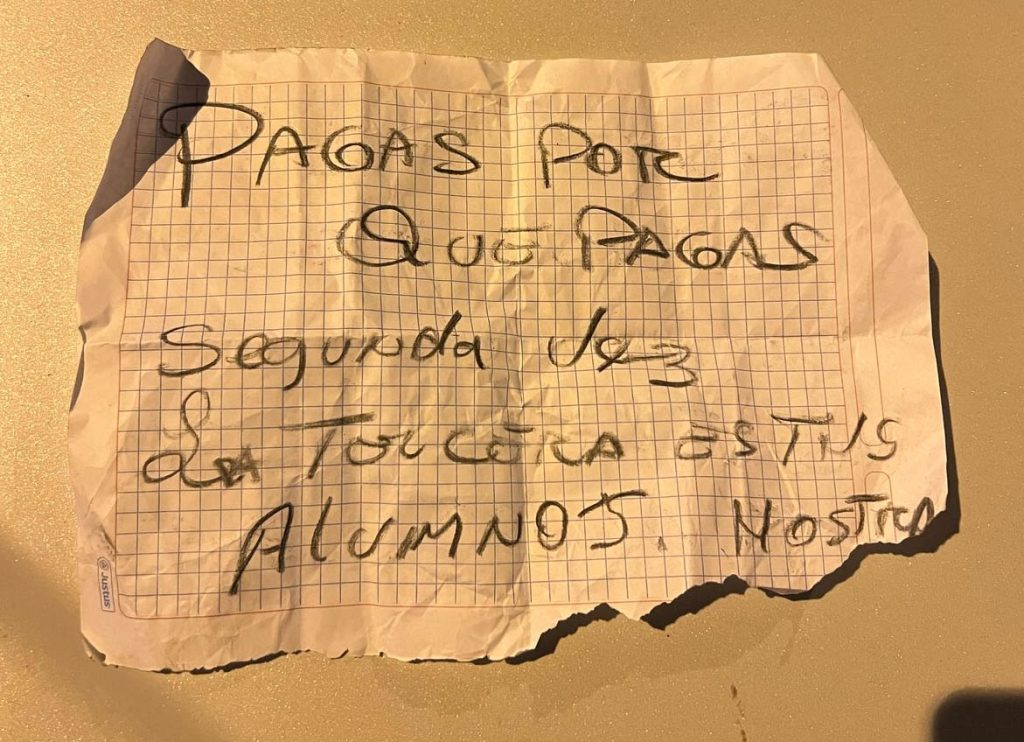 PAGAS POR
QUE PAGAS
Segunda vez
La TERCERA ES TUS
ALUMNOS. NOSTRA
Justus